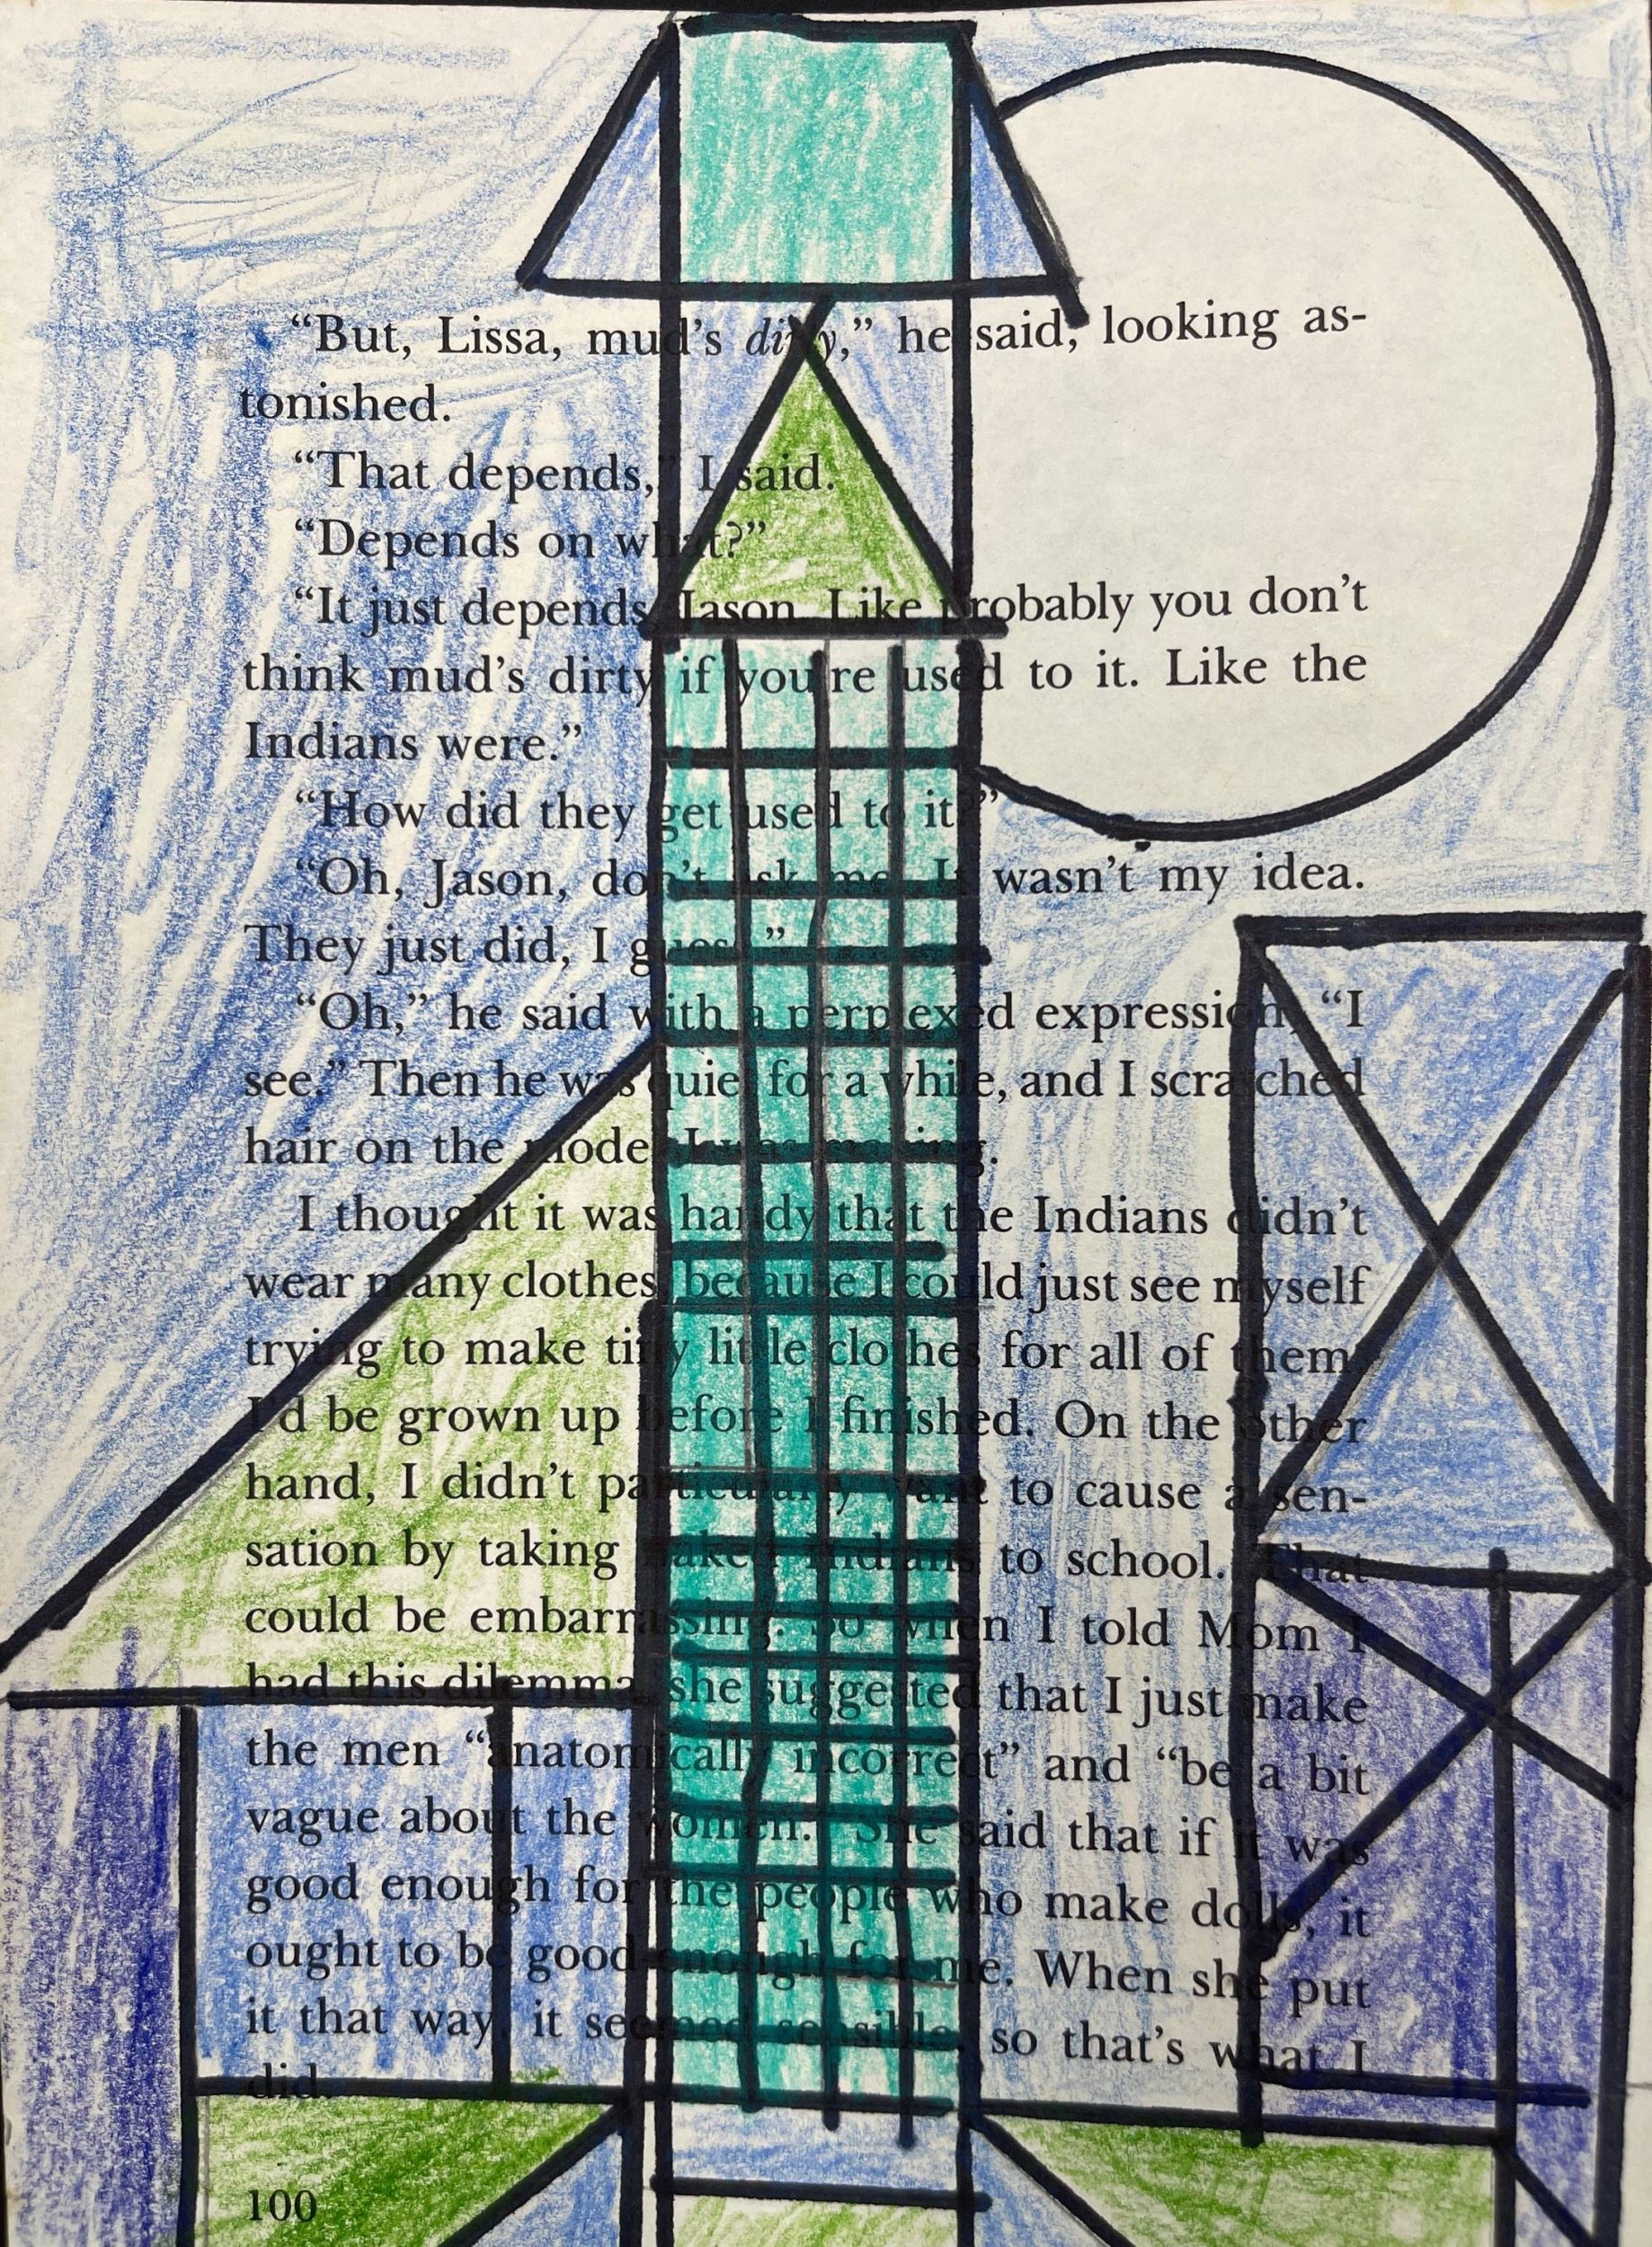 “But, Lissa, mud’s dirty,” he said, looking as-
tonished.
“That depends,” I said.
“Depends on what?”
“It just depends, Jason. Like probably you don’t
think mud’s dirty if you’re used to it. Like the
Indians were.”
“How did they get used to it?”
“Oh, Jason, don’t ask me. It wasn’t my idea.
They just did, I guess.”
“Oh,” he said with a perplexed expression, “I
see.” Then he was quiet for a while, and I scratched
hair on the model I was making.
I thought it was handy that the Indians didn’t
wear many clothes, because I could just see myself
trying to make tiny little clothes for all of them.
I’d be grown up before I finished. On the other
hand, I didn’t particularly want to cause a sen-
sation by taking naked Indians to school. That
could be embarrassing. So when I told Mom I
had this dilemma, she suggested that I just make
the men “anatomically incorrect” and “be a bit
vague about the women.” She said that if it was
good enough for the people who make dolls, it
ought to be good enough for me. When she put
it that way, it seemed sensible, so that’s what I
did.
100